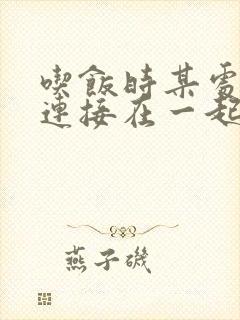 喫飯時某處
連接在一起
燕子磯